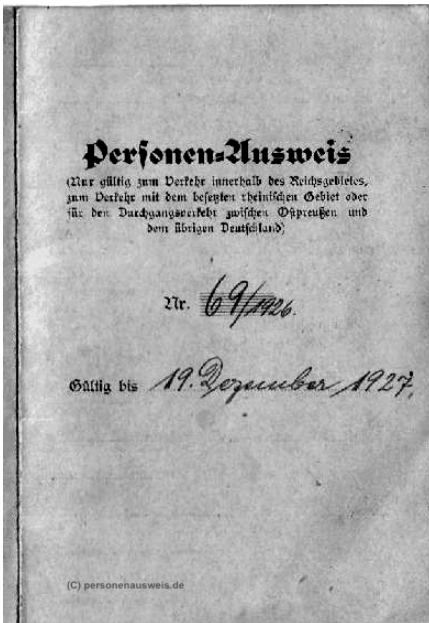 Personen-Ausweis
(Nur gültig zum Verkehr innerhalb des Reichsgebietes,
zum Verkehr mit dem besetzten rheinischen Gebiet oder
für den Durchgangsverkehr zwischen Ostpreußen und
dem übrigen Deutschland)
Nr. 69/1926.
Gültig bis 19. Dezember 1927.
(C) personenausweis.de